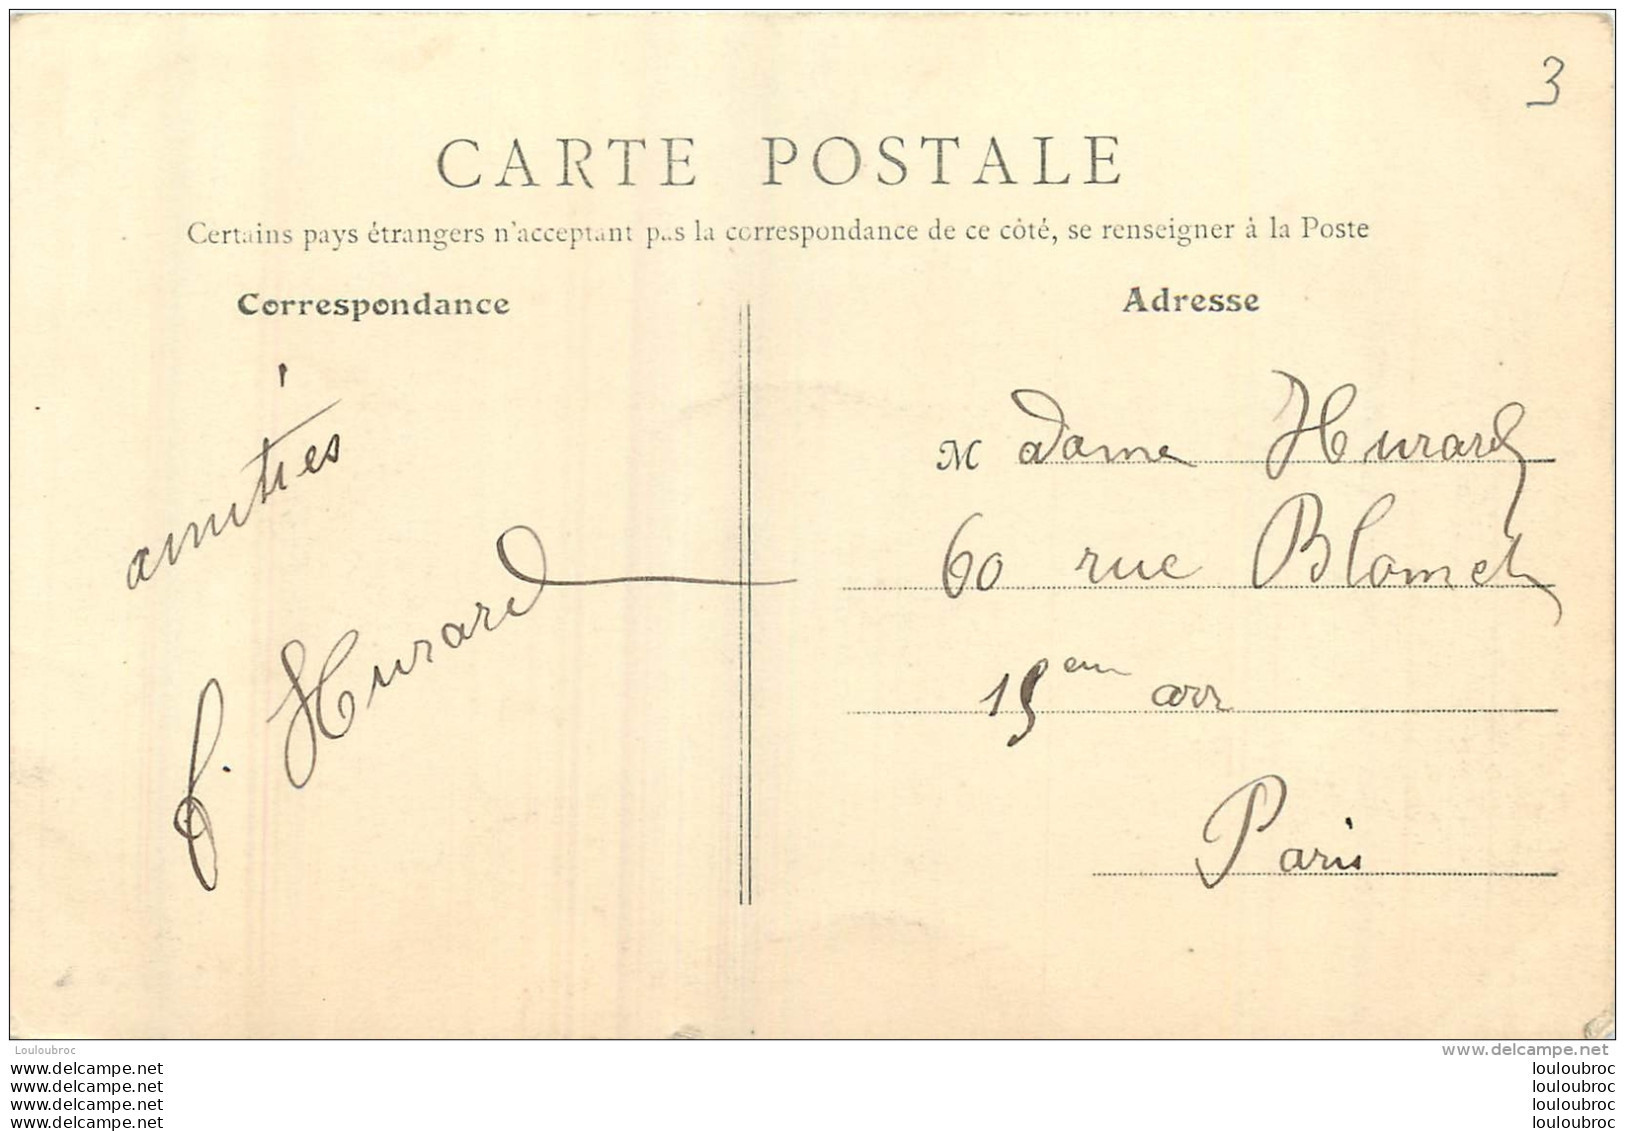 3
CARTE POSTALE
Certains pays étrangers n'acceptant pas la correspondance de ce côté, se renseigner à la Poste
Correspondance
amitiés
f. Hurard
Adresse
Madame Hurard
60 rue Blomet
15em arr
Paris
Louloubroc
www.delcampe.net
www.delcampe.net
www.delcampe.net
www.delcampe.net
www.delcampe.net
louloubroc
louloubroc
louloubroc
louloubroc